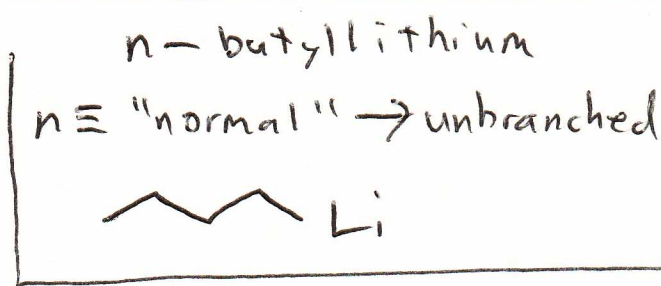 n - butyllithium
n ≡ "normal" → unbranched
Li